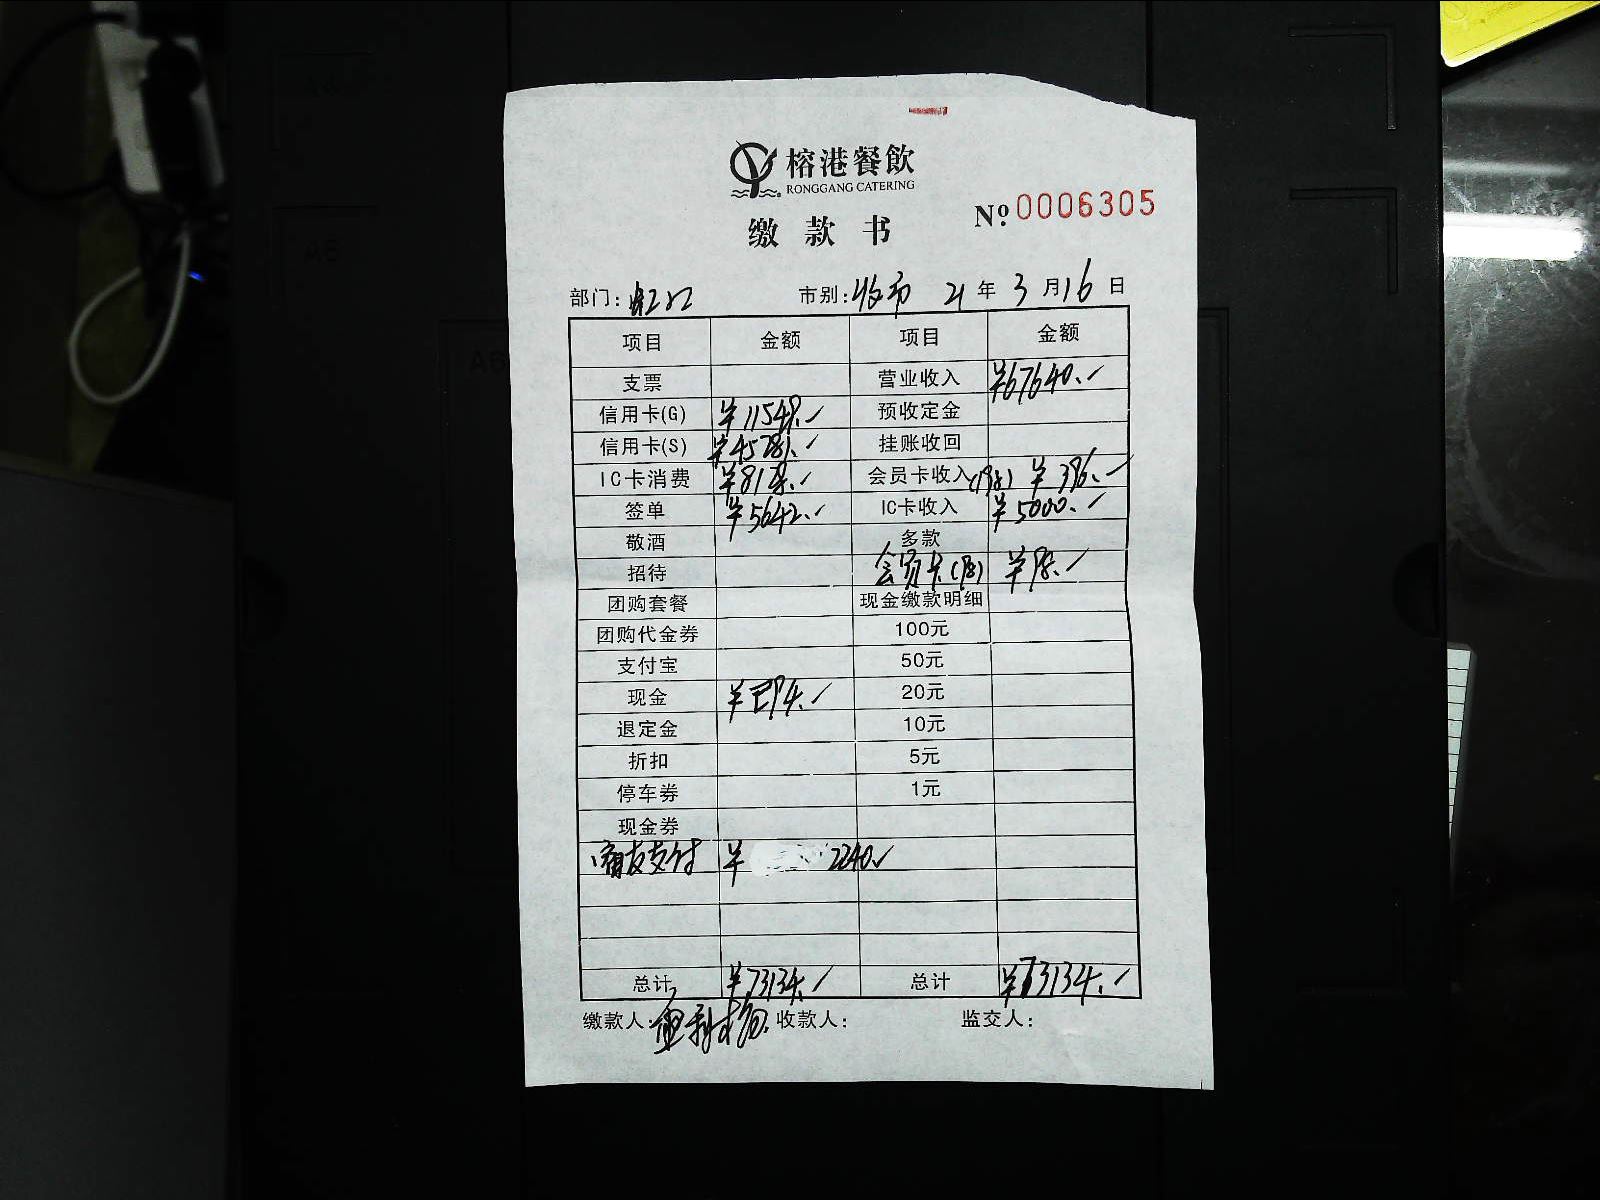 榕港餐飲
RONGGANG CATERING
缴款书
№ 0006305
部门: 虹口 市别: 收市 21 年 3 月 16 日
项目 金额 项目 金额
支票 营业收入 ¥67640.
信用卡(G) ¥11549. 预收定金
信用卡(S) ¥45281. 挂账收回
IC卡消费 ¥8128. 会员卡收入 (198) ¥396.
签单 ¥5642. IC卡收入 ¥5000.
敬酒 多款
招待 会员卡(98) ¥98.
团购套餐 现金缴款明细
团购代金券 100元
支付宝 50元
现金 ¥294. 20元
退定金 10元
折扣 5元
停车券 1元
现金券
商友支付 ¥ 2240.
总计 ¥73134. 总计 ¥73134.
缴款人: 收款人: 监交人: